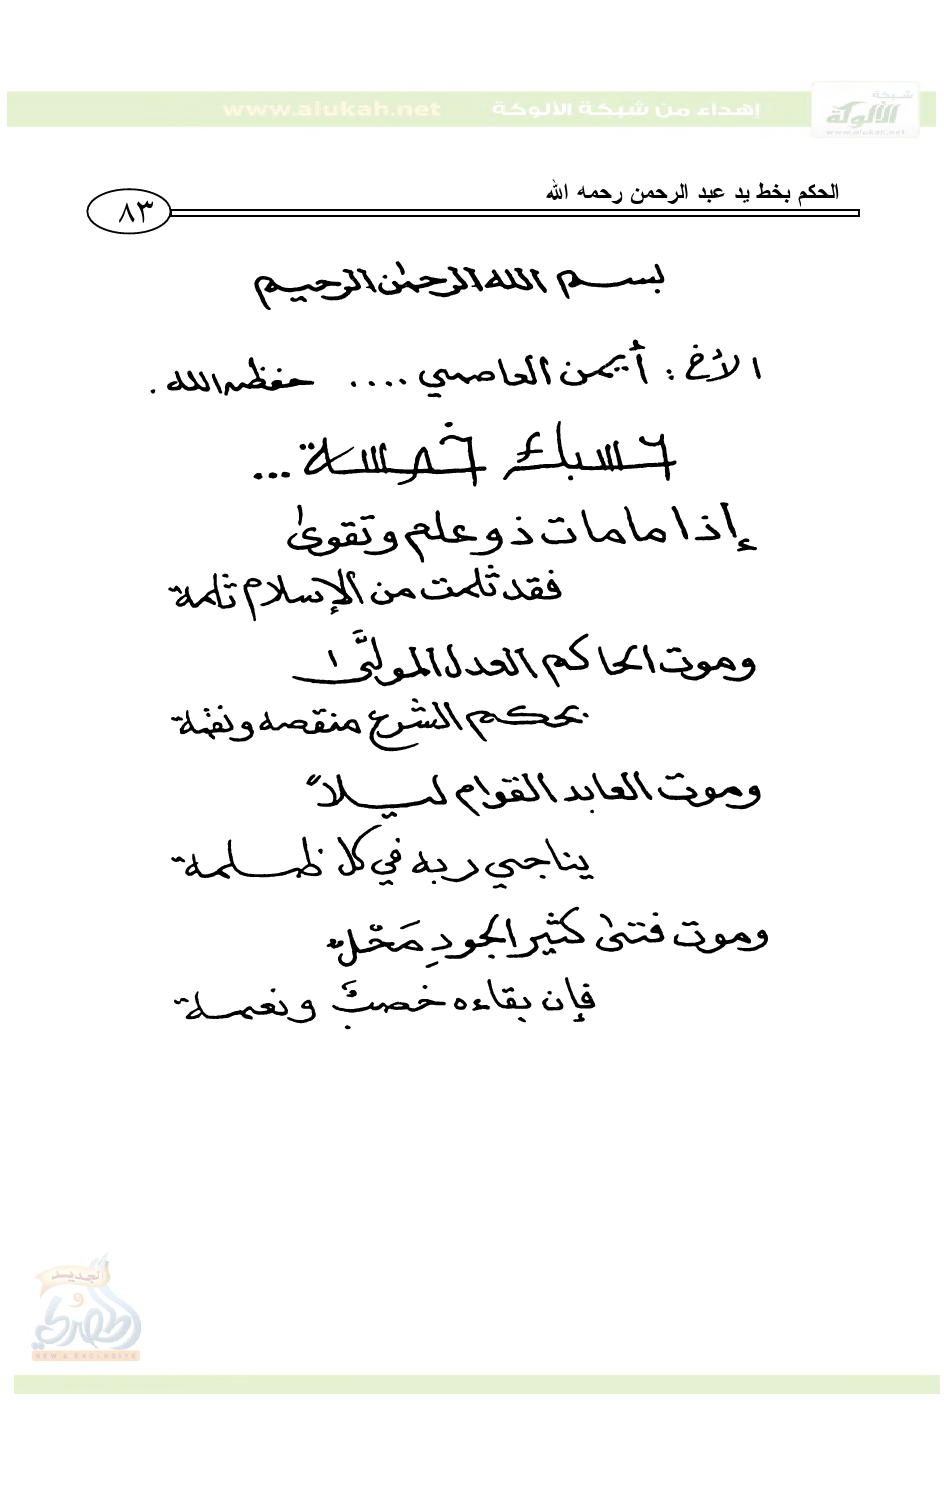 شبكة
الألوكة
www.alukah.net
إهداء من شبكة الألوكة www.alukah.net
الحكم بخط يد عبد الرحمن رحمه الله
٨٣
بسم الله الرحمن الرحيم
الأخ : أيمن العاصمي .... حفظه الله .
حسبك خمسة ...
إذا ما مات ذو علم وتقوى
فقد ثلمت من الإسلام ثلمة
وموت الحاكم العدل المولَّى
بحكم الشرع منقصة ونقمة
وموت العابد القوام ليلاً
يناجي ربه في كل ظلمة
وموت فتى كثير الجودِ مَحْلٌ
فإن بقاءه خصبٌ ونعمة
الجديد
و
الحصري
NEW & EXCLUSIVE